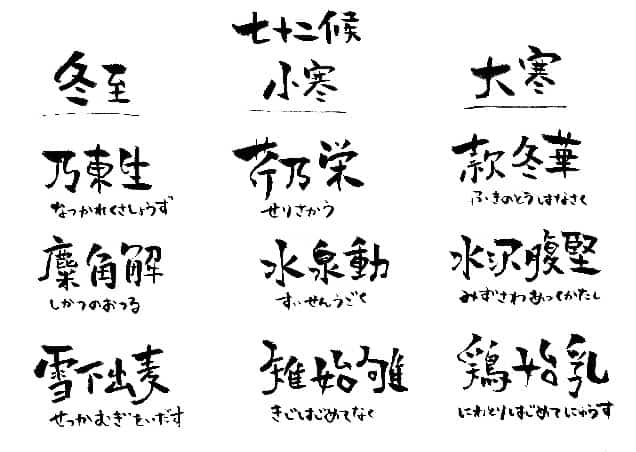 七十二候
冬至
乃東生
なつかれくさしょうず
麋角解
しかつのおつる
雪下出麦
せつかむぎをいだす
小寒
芹乃栄
せりさかう
水泉動
すいせんうごく
雉始雊
きじはじめてなく
大寒
款冬華
ふきのとうはなさく
水沢腹堅
みずさわあつくかたし
鶏始乳
にわとりはじめてにゅうす